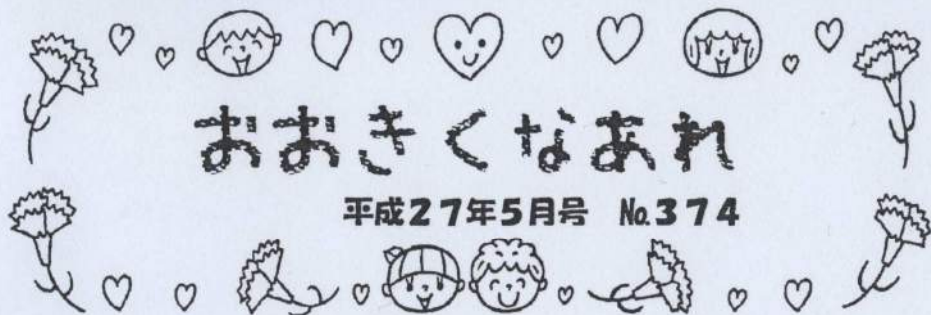 おおきくなあれ
平成27年5月号 No.374